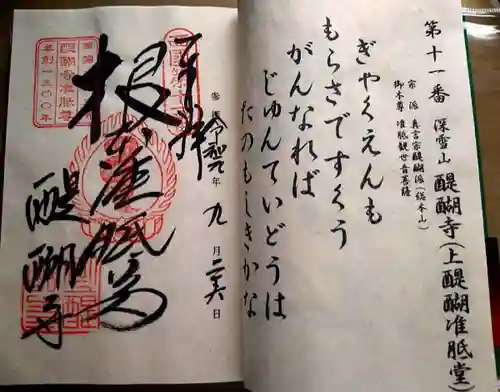 第十一番 深雪山 醍醐寺(上醍醐准胝堂)
宗派 真言宗醍醐派(総本山)
御本尊 准胝観世音菩薩
ぎやくえんも
もらさですくう
がんなれば
じゆんていどうは
たのもしきかな
令和元年九月二六日
奉拝
根本准胝尊
醍醐寺
醍醐准胝尊
草創一三〇〇年